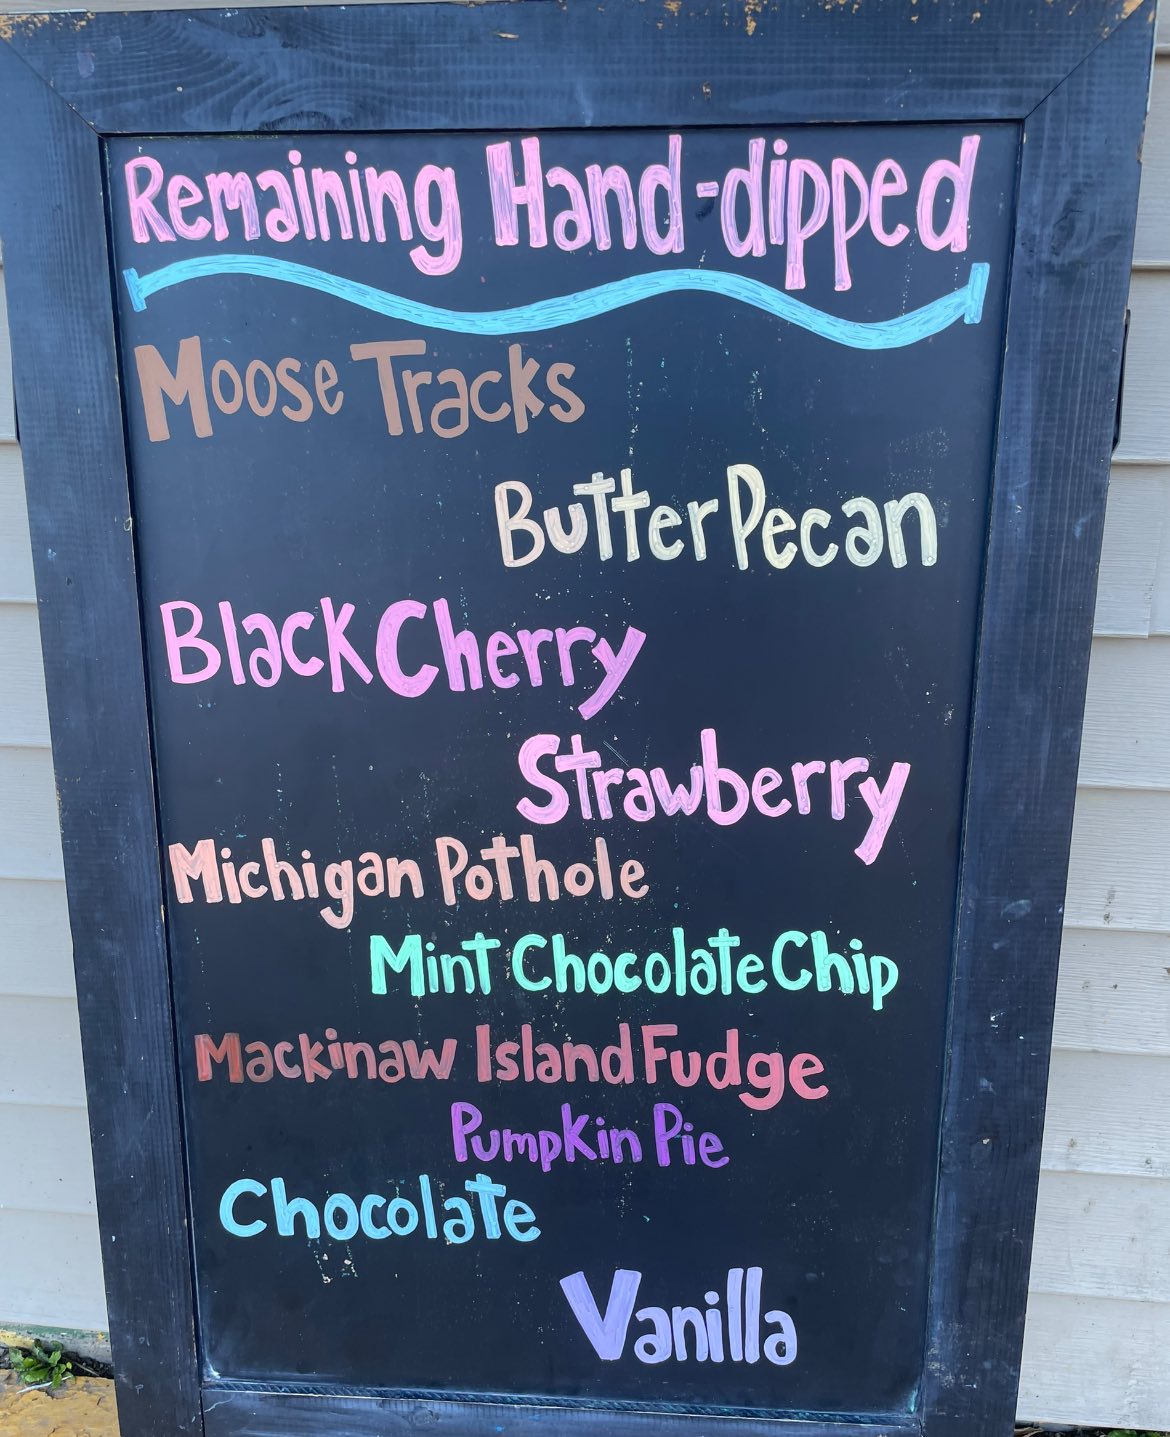 Remaining Hand-dipped
Moose Tracks
Butter Pecan
Black Cherry
Strawberry
Michigan Pothole
Mint Chocolate Chip
Mackinaw Island Fudge
Pumpkin Pie
Chocolate
Vanilla